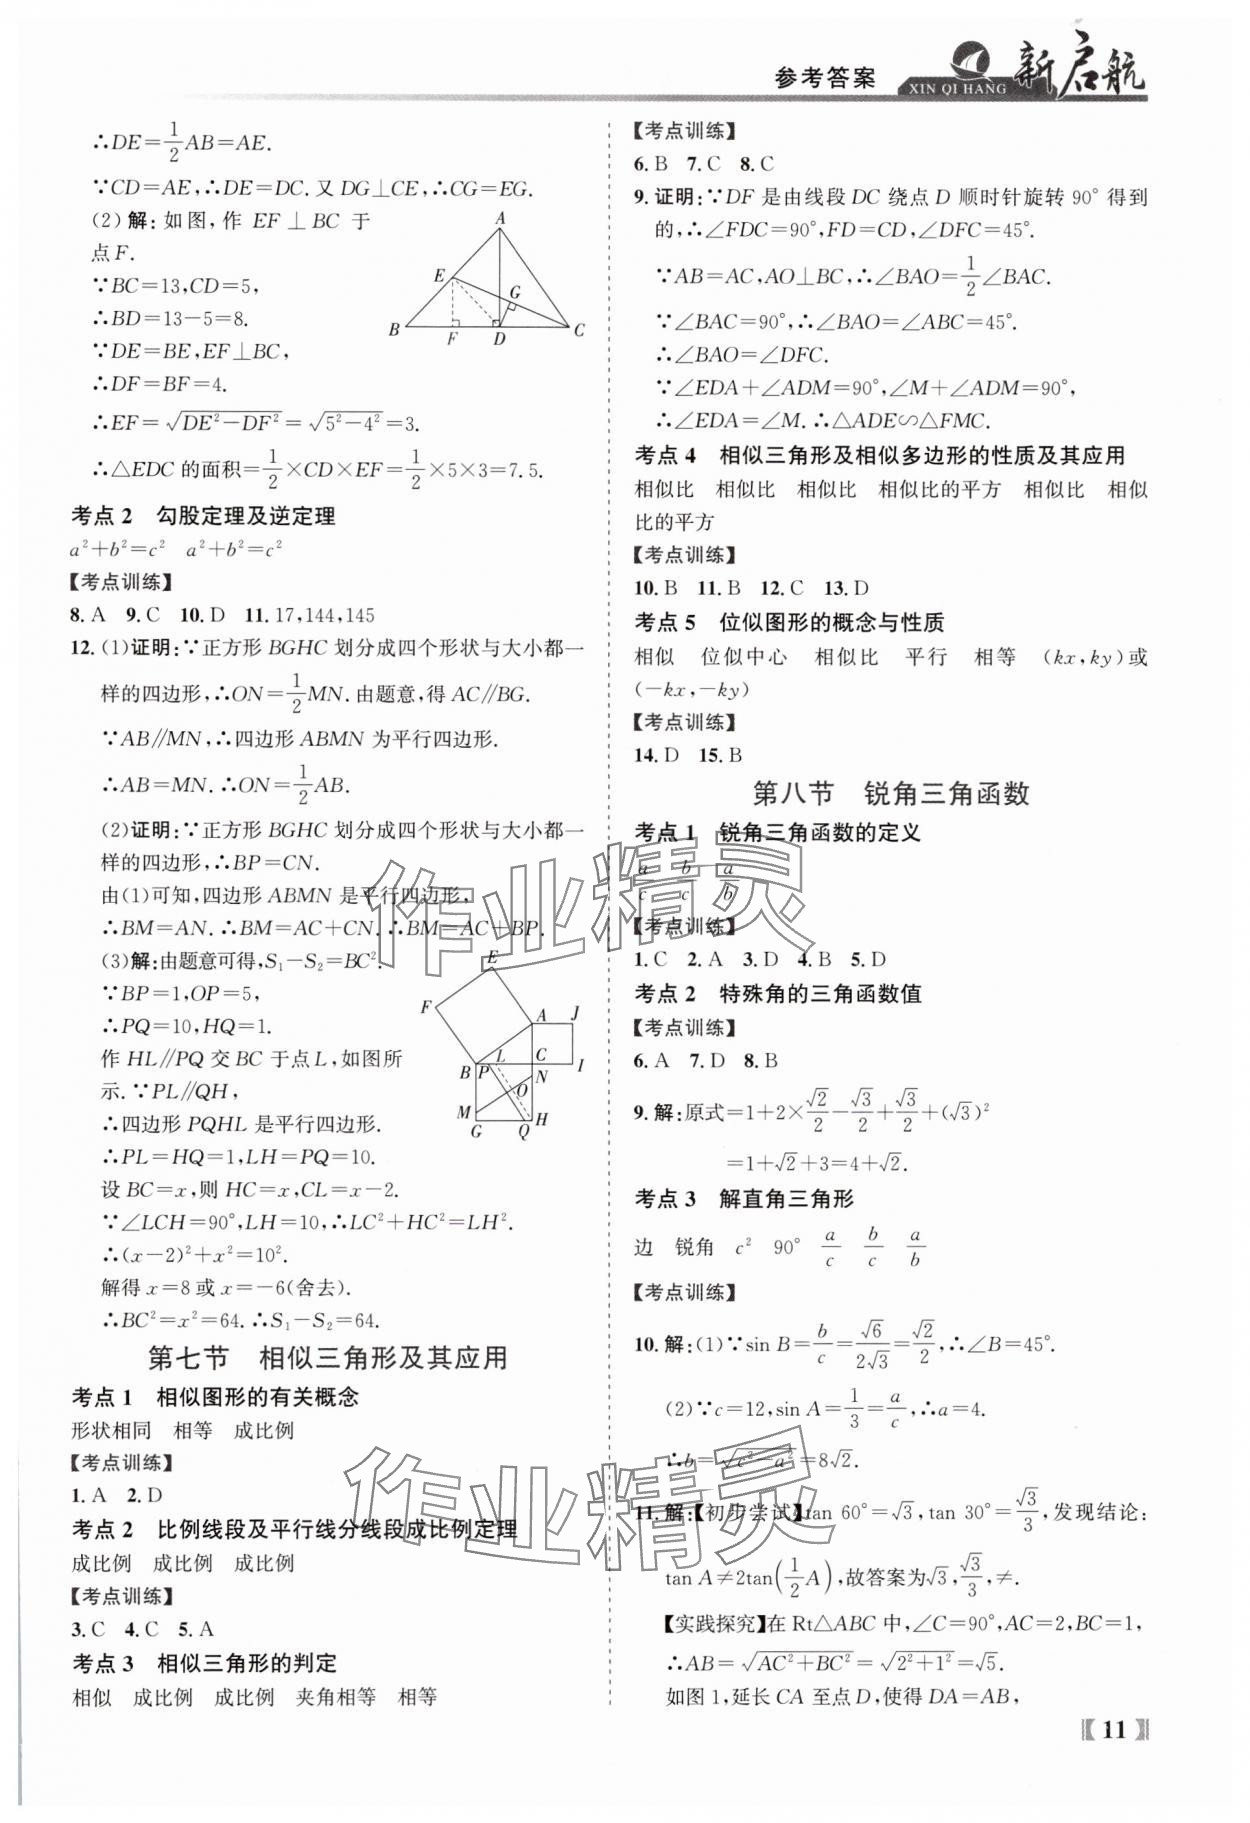 参考答案
XIN QI HANG
新启航
∴DE=1/2AB=AE.
∵CD=AE,∴DE=DC.又DG⊥CE,∴CG=EG.
(2)解:如图,作 EF⊥BC 于
点F.
∵BC=13,CD=5,
∴BD=13-5=8.
∵DE=BE,EF⊥BC,
∴DF=BF=4.
A
E
G
B
F
D
C
∴EF=√(DE²-DF²)=√(5²-4²)=3.
∴△EDC的面积=1/2×CD×EF=1/2×5×3=7.5.
考点2 勾股定理及逆定理
a²+b²=c² a²+b²=c²
【考点训练】
8.A 9.C 10.D 11.17,144,145
12.(1)证明:∵正方形BGHC划分成四个形状与大小都一
样的四边形,∴ON=1/2MN.由题意,得AC∥BG.
∵AB∥MN,∴四边形ABMN为平行四边形.
∴AB=MN.∴ON=1/2AB.
(2)证明:∵正方形BGHC划分成四个形状与大小都一
样的四边形,∴BP=CN.
由(1)可知,四边形ABMN是平行四边形,
∴BM=AN.∴BM=AC+CN.∴BM=AC+BP.
(3)解:由题意可得,S₁-S₂=BC².
∵BP=1,OP=5,
∴PQ=10,HQ=1.
作HL∥PQ交BC于点L,如图所
示.∵PL∥QH,
∴四边形PQHL是平行四边形.
∴PL=HQ=1,LH=PQ=10.
设BC=x,则HC=x,CL=x-2.
E
F
A
J
B
P
L
C
I
N
O
M
G
Q
H
∵∠LCH=90°,LH=10,∴LC²+HC²=LH².
∴(x-2)²+x²=10².
解得x=8或x=-6(舍去).
∴BC²=x²=64.∴S₁-S₂=64.
第七节 相似三角形及其应用
考点1 相似图形的有关概念
形状相同 相等 成比例
【考点训练】
1.A 2.D
考点2 比例线段及平行线分线段成比例定理
成比例 成比例 成比例
【考点训练】
3.C 4.C 5.A
考点3 相似三角形的判定
相似 成比例 成比例 夹角相等 相等
【考点训练】
6.B 7.C 8.C
9.证明:∵DF是由线段DC绕点D顺时针旋转90°得到
的,∴∠FDC=90°,FD=CD,∠DFC=45°.
∵AB=AC,AO⊥BC,∴∠BAO=1/2∠BAC.
∵∠BAC=90°,∴∠BAO=∠ABC=45°.
∴∠BAO=∠DFC.
∵∠EDA+∠ADM=90°,∠M+∠ADM=90°,
∴∠EDA=∠M.∴△ADE∽△FMC.
考点4 相似三角形及相似多边形的性质及其应用
相似比 相似比 相似比 相似比的平方 相似比 相似
比的平方
【考点训练】
10.B 11.B 12.C 13.D
考点5 位似图形的概念与性质
相似 位似中心 相似比 平行 相等 (kx,ky)或
(-kx,-ky)
【考点训练】
14.D 15.B
第八节 锐角三角函数
考点1 锐角三角函数的定义
a/c b/c a/b
【考点训练】
1.C 2.A 3.D 4.B 5.D
考点2 特殊角的三角函数值
【考点训练】
6.A 7.D 8.B
9.解:原式=1+2×√2/2-√3/2+√3/2+(√3)²
=1+√2+3=4+√2.
考点3 解直角三角形
边 锐角 c² 90° a/c b/c a/b
【考点训练】
10.解:(1)∵sin B=b/c=√6/2√3=√2/2,∴∠B=45°.
(2)∵c=12,sin A=1/3=a/c,∴a=4.
∴b=√(c²-a²)=8√2.
11.解:【初步尝试】tan 60°=√3,tan 30°=√3/3,发现结论:
tan A≠2tan(1/2A),故答案为√3,√3/3,≠.
【实践探究】在Rt△ABC中,∠C=90°,AC=2,BC=1,
∴AB=√(AC²+BC²)=√(2²+1²)=√5.
如图1,延长CA至点D,使得DA=AB,
11
作业精灵
作业精灵